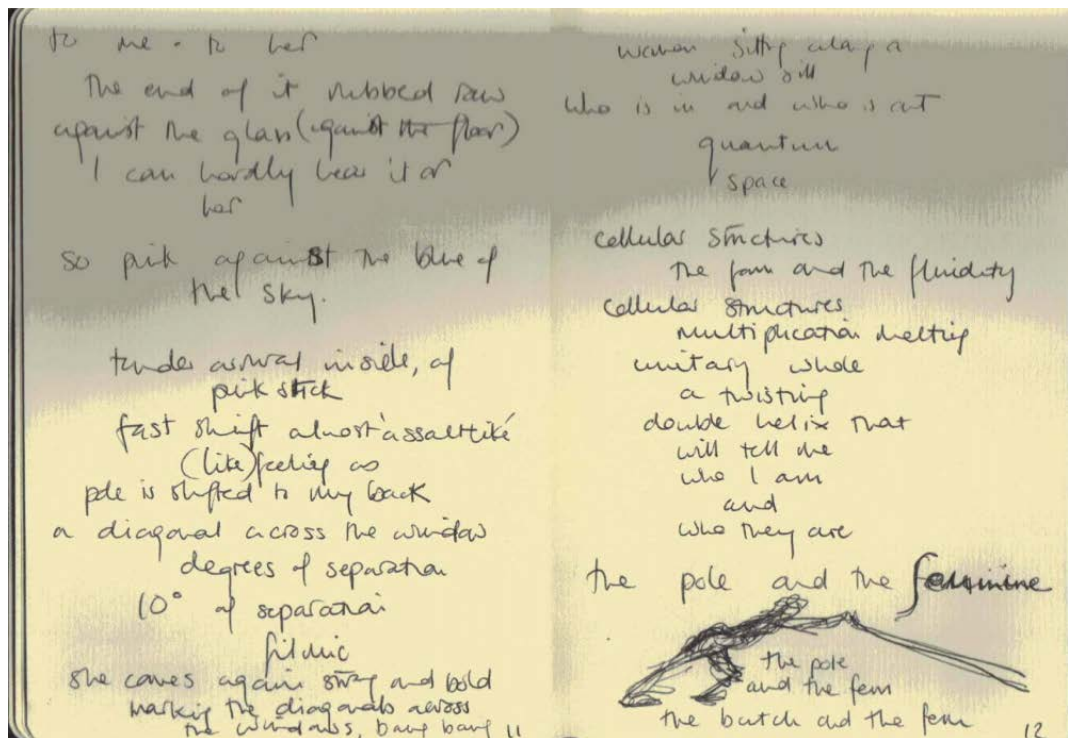 to me - to her
The end of it rubbed raw
against the glass (against the floor)
I can hardly hear it or
her
so pink against the blue of
the sky.
tender arrival inside, of
pink stick
fast shift almost assaultlike
(like) feeling as
pole is shifted to my back
a diagonal across the window
degrees of separation
10° of separation
filmic
she comes again strong and bold
marking the diagonals across
the windows, bang bang
11
women sitting along a
window sill
who is in and who is out
quantum
space
cellular structures
the form and the fluidity
cellular structures
multiplication melting
unitary whole
a twisting
double helix that
will tell me
who I am
and
who they are
the pole and the feminine
the pole
and the fem
the butch and the fem
12